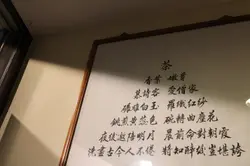 茶
香葉 嫩芽
慕詩客 愛僧家
碾雕白玉 羅織紅紗
銚煎黃蕊色 碗轉曲塵花
夜後邀陪明月 晨前命對朝霞
洗盡古今人不倦 將知醉後豈堪誇